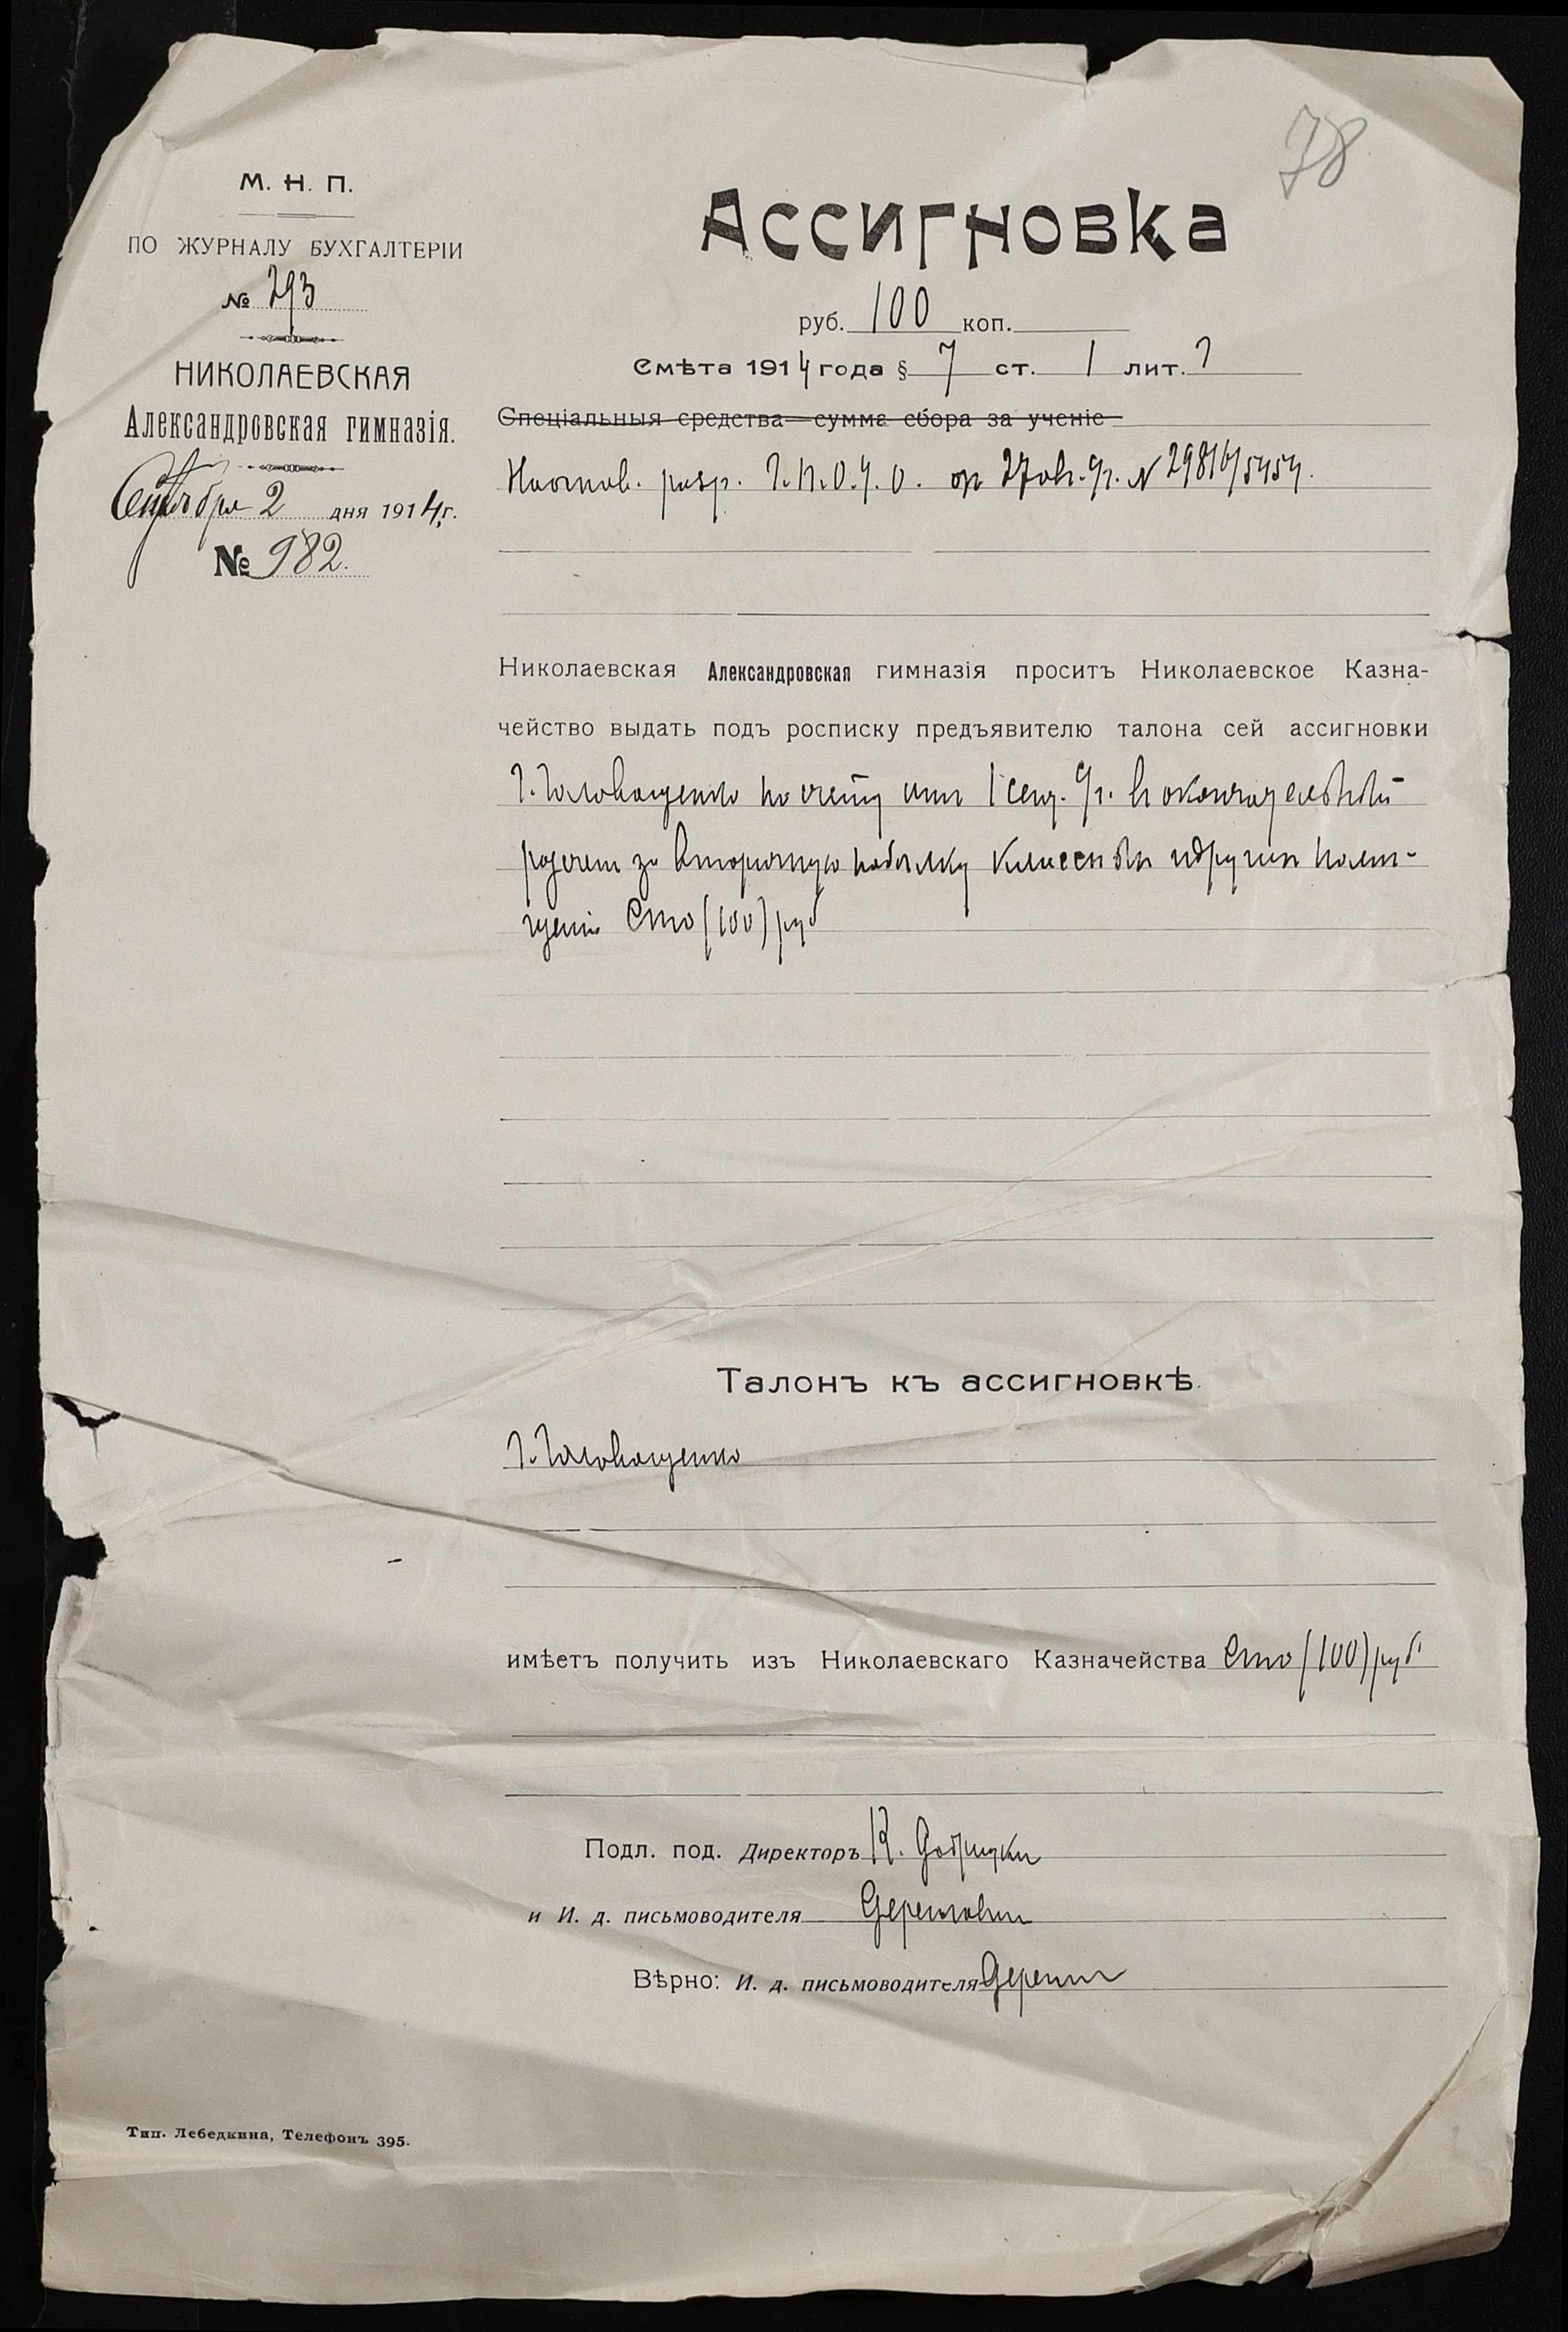 78
М. Н. П.
ПО ЖУРНАЛУ БУХГАЛТЕРІИ
№ 293
НИКОЛАЕВСКАЯ
Александровская гимназія.
Сентября 2 дня 1914 г.
№ 982.
Ассигновка
руб. 100 коп.
Смѣта 1914 года § 7 ст. 1 лит.
Спеціальныя средства—сумма сбора за ученіе
разр. Г. П. О. У. О. 27 № 29816/5454.
Николаевская Александровская гимназія проситъ Николаевское Казна-
чейство выдать подъ росписку предъявителю талона сей ассигновки
Г. Головащенко по счету 1 сент. с/г. въ
за вторичную побѣлку классовъ и другихъ помѣ-
щеній Сто (100) руб
Талонъ къ ассигновкѣ.
Г. Головащенко
имѣетъ получить изъ Николаевскаго Казначейства Сто (100) руб
Подл. под. Директоръ
и И. д. письмоводителя
Вѣрно: И. д. письмоводителя
Тип. Лебедкина, Телефонъ 395.